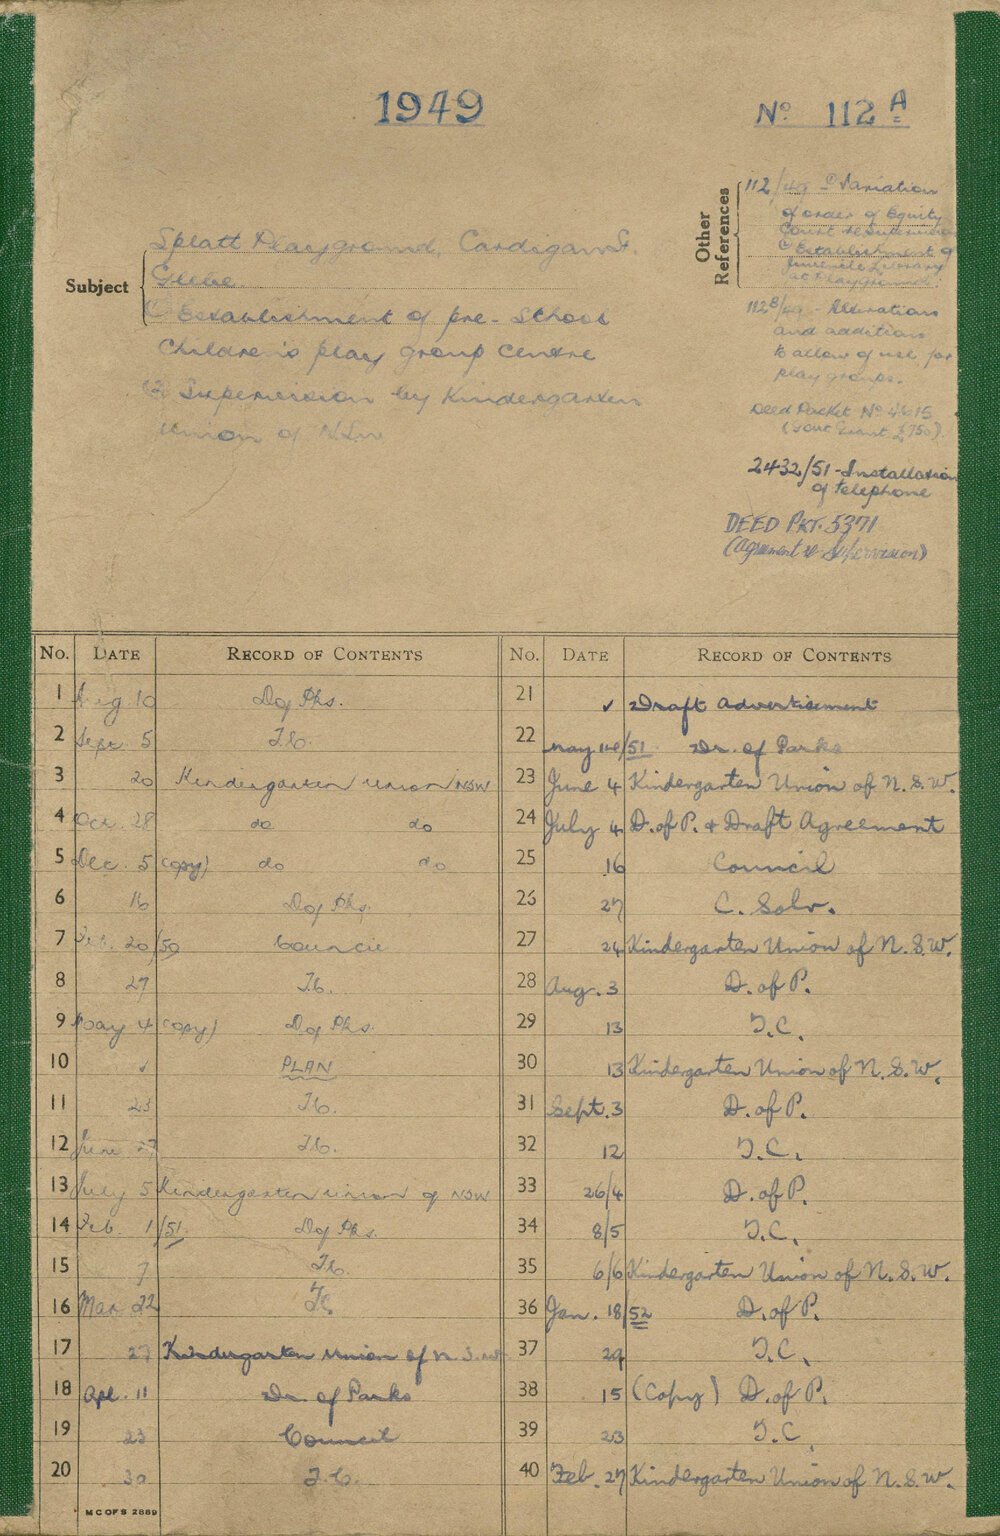 1949
No 112 A
Other References
112/49 - Variation
of order of Equity
Court re
Establishment of
Juvenile Library
at Playground.
112B/49 - Alterations
and additions
to allow of use for
play groups.
Deed Packet No 4615
(Govt Grant £750)
2432/51 - Installation
of telephone
DEED PKT. 5371
(Agreement re Supervision)
Subject
Splatt Playground, Cardigan St.
Glebe.
(1) Establishment of pre-School
Children's play group centre
(2) Supervision by Kindergarten
Union of NSW
No. DATE RECORD OF CONTENTS
1 Aug 10 D of Pks.
2 Sept. 5 T.C.
3 20 Kindergarten Union NSW
4 Oct. 28 do do
5 Dec. 5 (copy) do do
6 16 D of Pks.
7 Feb. 20/50 Council
8 27 T.C.
9 May 4 (copy) D of Pks.
10 ✓ PLAN
11 23 T.C.
12 June 27 T.C.
13 July 5 Kindergarten Union of NSW
14 Feb. 1/51 D of Pks.
15 7 T.C.
16 Mar 22 T.C.
17 27 Kindergarten Union of N.S.W
18 Apl. 11 Dr. of Parks
19 23 Council
20 30 T.C.
MCOFS 2889
No. DATE RECORD OF CONTENTS
21 ✓ Draft Advertisement
22 May 14/51. Dr. of Parks
23 June 4 Kindergarten Union of N.S.W.
24 July 4 D. of P. + Draft Agreement
25 16 Council
26 27 C. Solr.
27 24 Kindergarten Union of N.S.W.
28 Aug. 3 D. of P.
29 13 T.C.
30 13 Kindergarten Union of N.S.W.
31 Sept. 3 D. of P.
32 12 T.C.
33 26/4 D. of P.
34 8/5 T.C.
35 6/6 Kindergarten Union of N.S.W.
36 Jan. 18/52 D. of P.
37 29 T.C.
38 15 (Copy) D. of P.
39 23 T.C.
40 Feb. 27 Kindergarten Union of N.S.W.